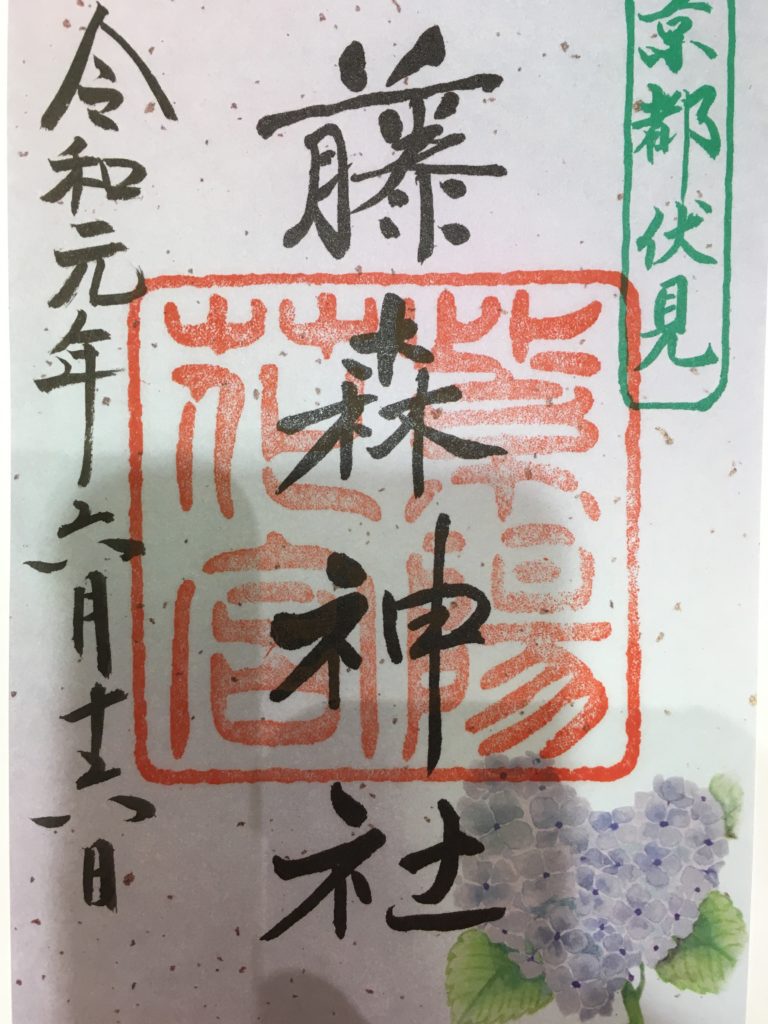 京都伏見
藤森神社
紫陽
花宮
令和元年六月十六日